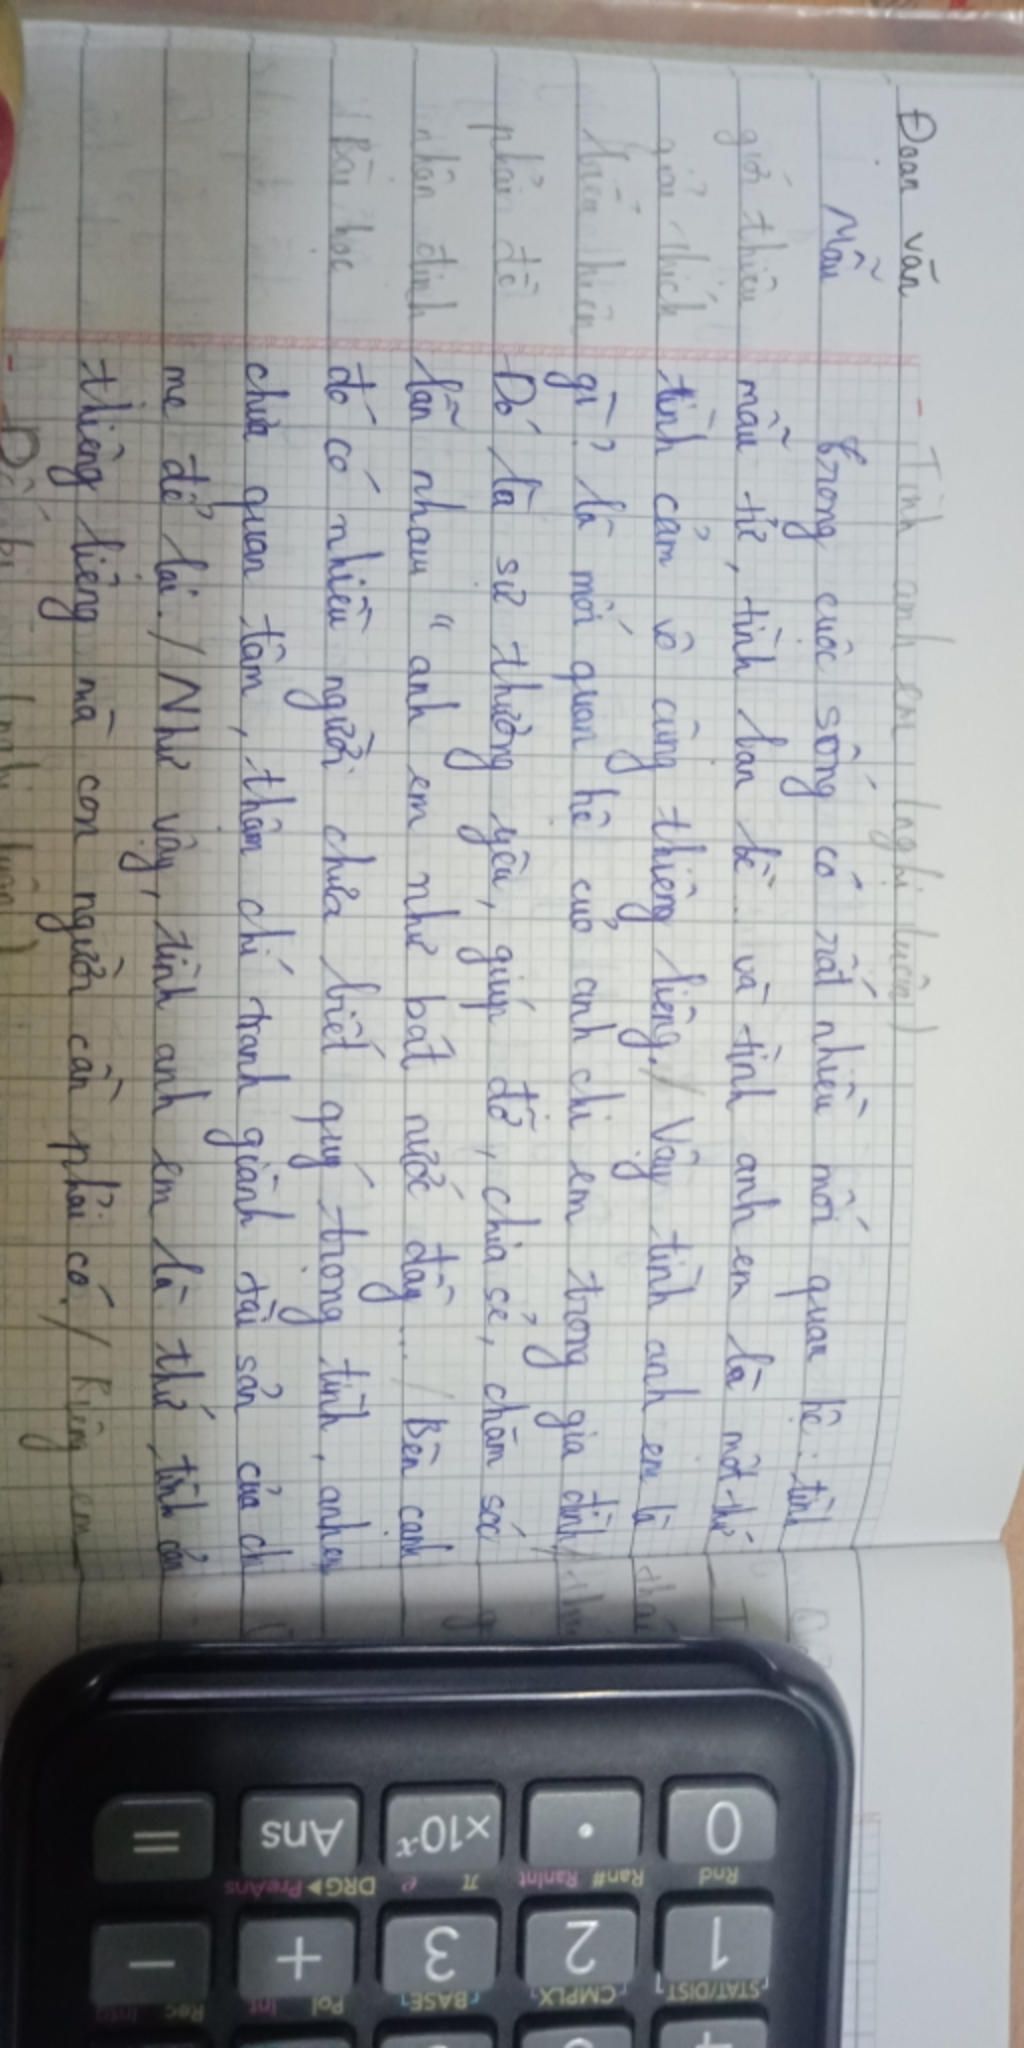 Đoạn văn - Tình anh em (nghị luận)
Mẫu Trong cuộc sống có rất nhiều mối quan hệ: tình
giới thiệu mẫu tử, tình bạn bè.. và tình anh em là một thứ
giải thích tình cảm vô cùng thiêng liêng./ Vậy tình anh em là
biểu hiện gì? là mối quan hệ của anh chị em trong gia đình/
phản đề Đó là sự thương yêu, giúp đỡ, chia sẻ, chăm sóc
nhận định lẫn nhau "anh em như bát nước đầy.../ Bên cạnh
Bài học đó có nhiều người chưa biết quý trọng tình, anh em
chưa quan tâm, thậm chí tranh giành tài sản của cha
mẹ để lại./ Như vậy, tình anh em là thứ tình cảm
thiêng liêng mà con người cần phải có./ Riêng em
0 . ×10ˣ Ans =
Rnd Ran# RanInt π e DRG▶ PreAns
1 2 3 + −
STAT/DIST CMPLX BASE Pol Int Rec